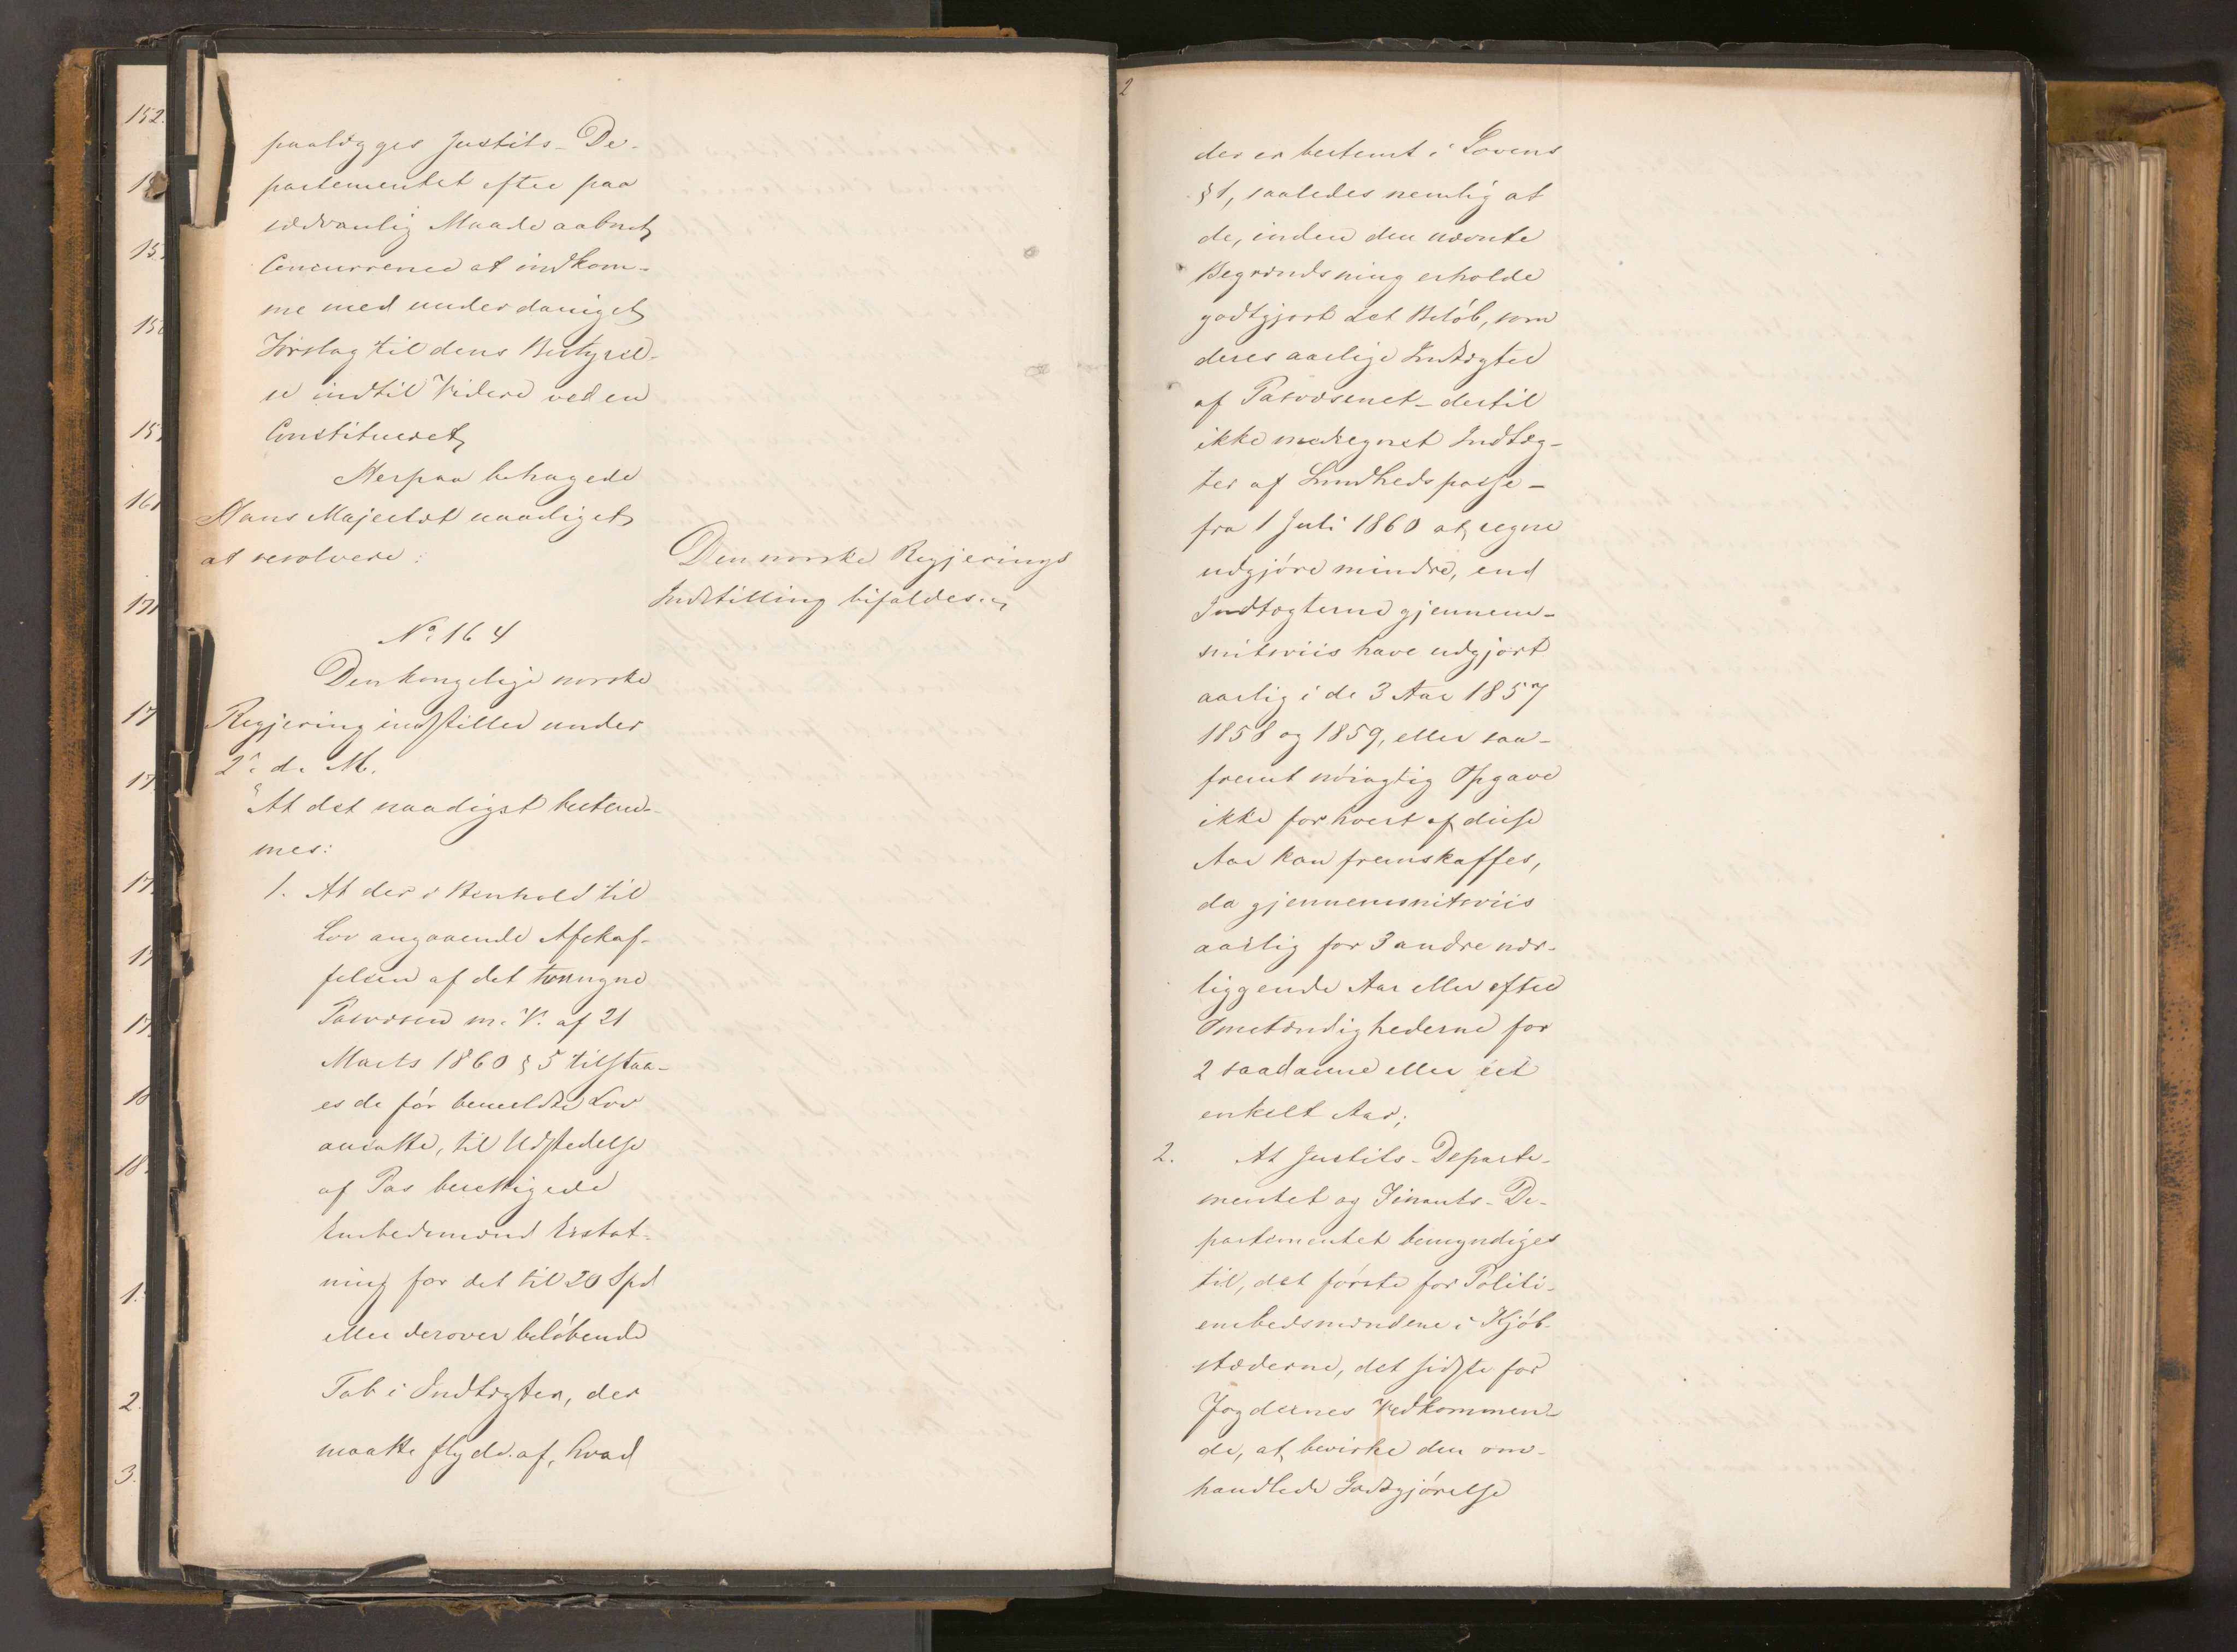 paalægges Justits-De-
partementet efter paa
sædvanlig Maade aabnet
Concurrence at indkom-
me med underdanigst
Forslag til dens Bestyrel-
se indtil Videre ved en
Constitueret,
Herpaa behagede
Hans Majestæt naadigst
at resolvere:
Den norske Regjerings
Indstilling bifaldes.
No. 164
Den kongelige norske
Regjering indstiller under
2. d. M.
"At det naadigst bestem-
mes:
1. At der i Henhold til
Lov angaaende Afskaf-
felsen af det tvungne
Pasvæsen m. V. af 21
Marts 1860 § 5 tilstaa-
es de før bemeldte Lov
ansatte, til Udstedelse
af Pas berettigede
Embedsmænd Erstat-
ning for det til 20 Spd
eller derover beløbende
Tab i Indtægter, der
maatte flyde af, hvad
2
der er bestemt i Lovens
§ 1, saaledes nemlig at
de, inden den nævnte
Begrændsning erholde
godtgjort det Beløb, som
deres aarlige Indtægter
af Pasvæsenet - dertil
ikke medregnet Indtæg-
ter af Sundhedspasse -
fra 1 Juli 1860 at regne
udgjøre mindre, end
Indtægterne gjennem-
snitsviis have udgjort
aarlig i de 3 Aar 1857
1858 og 1859, eller saa-
fremt nøiagtig Opgave
ikke for hvert af disse
Aar kan fremskaffes,
da gjennemsnitsviis
aarlig for 3 andre nær-
liggende Aar eller efter
Omstændighederne for
2 saadanne eller eet
enkelt Aar;
2. At Justits-Departe-
mentet og Finants-De-
partementet bemyndiges
til, det første for Politi-
embedsmændene i Kjøb-
stæderne, det sidste for
Fogdernes Vedkommen-
de, at bevirke den om-
handlede Godtgjørelse
152.